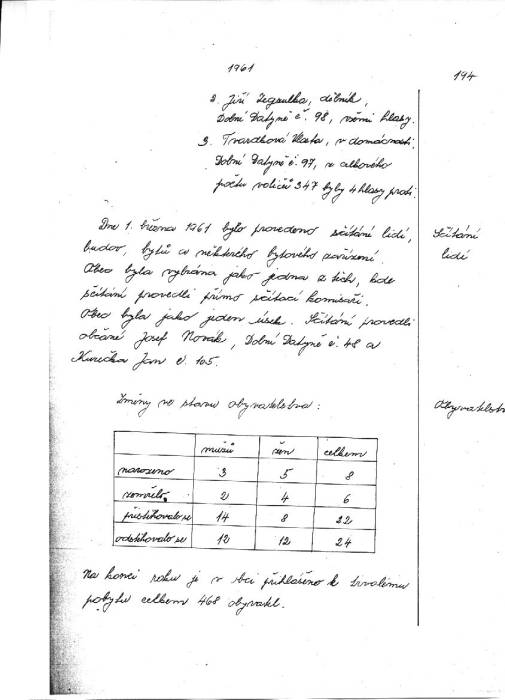 1961
194
2. Jiří Zegzulka, dělník,
Dolní Datyně č. 98, všemi hlasy.
3. Tvardková Vlasta, v domácnosti
Dolní Datyně č. 97, z celkového
počtu voličů 347 byly 4 hlasy proti.
Dne 1. března 1961 bylo provedeno sčítání lidí,
budov, bytů a některého bytového zařízení.
Obec byla vybrána jako jedna z těch, kde
sčítání provedli přímo sčítací komisaři.
Obec byla jako jeden úsek. Sčítání provedli
občané Josef Novák, Dolní Datyně č. 48 a
Kurečka Jan č. 105.
Sčítání
lidí
Změny ve stavu obyvatelstva:
Obyvatelstv
mužů žen celkem
narozeno 3 5 8
zemřelo 2 4 6
přistěhovalo se 14 8 22
odstěhovalo se 12 12 24
Na konci roku je v obci přihlášeno k trvalému
pobytu celkem 468 obyvatel.